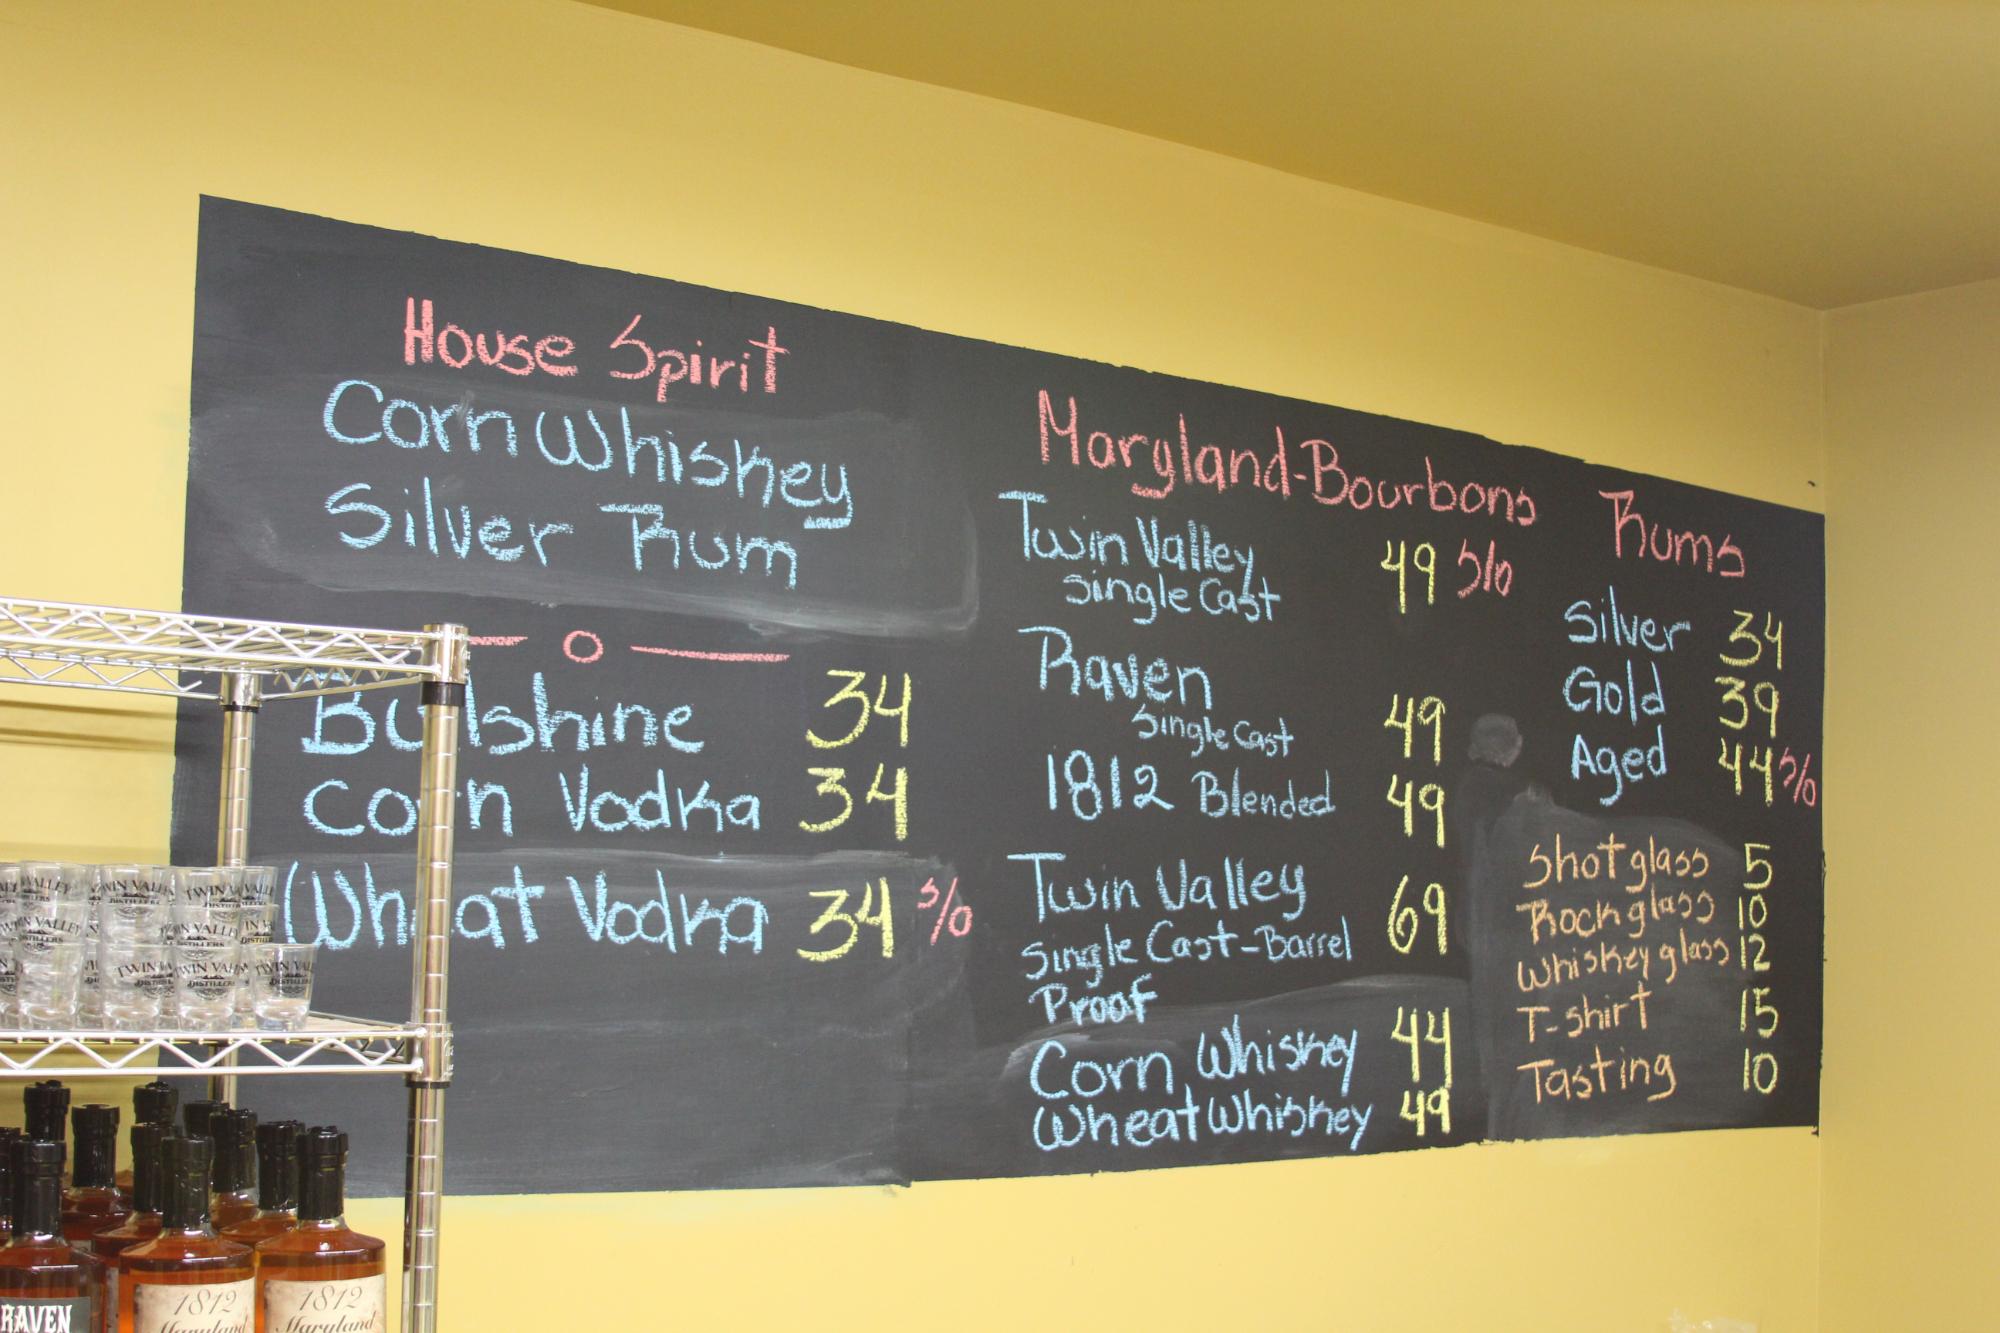 House Spirit
Corn Whiskey
Silver Rum
O
Bullshine 34
Corn Vodka 34
Wheat Vodka 34 s/o
Maryland-Bourbons
Twin Valley 49 s/o
Single Cast
Raven
Single Cast 49
1812 Blended 49
Twin Valley 69
Single Cast-Barrel
Proof
Corn Whiskey 44
Wheat Whiskey 49
Rums
Silver 34
Gold 39
Aged 44 s/o
Shot glass 5
Rock glass 10
Whiskey glass 12
T-shirt 15
Tasting 10
TWIN VALLEY
DISTILLERS
RAVEN
1812
Maryland
1812
Maryland